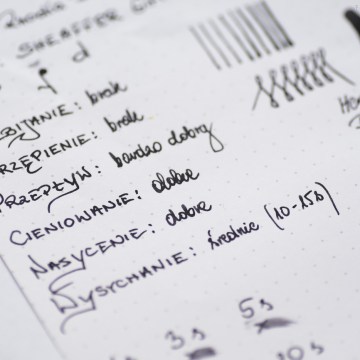 SHEAFFER
d
PRZEBIJANIE: brak
STRZĘPIENIE: brak
PRZEPŁYW: bardzo dobry
CIENIOWANIE: dobre
NASYCENIE: dobre
WYSYCHANIE: średnie (10-15s)
3s 5s